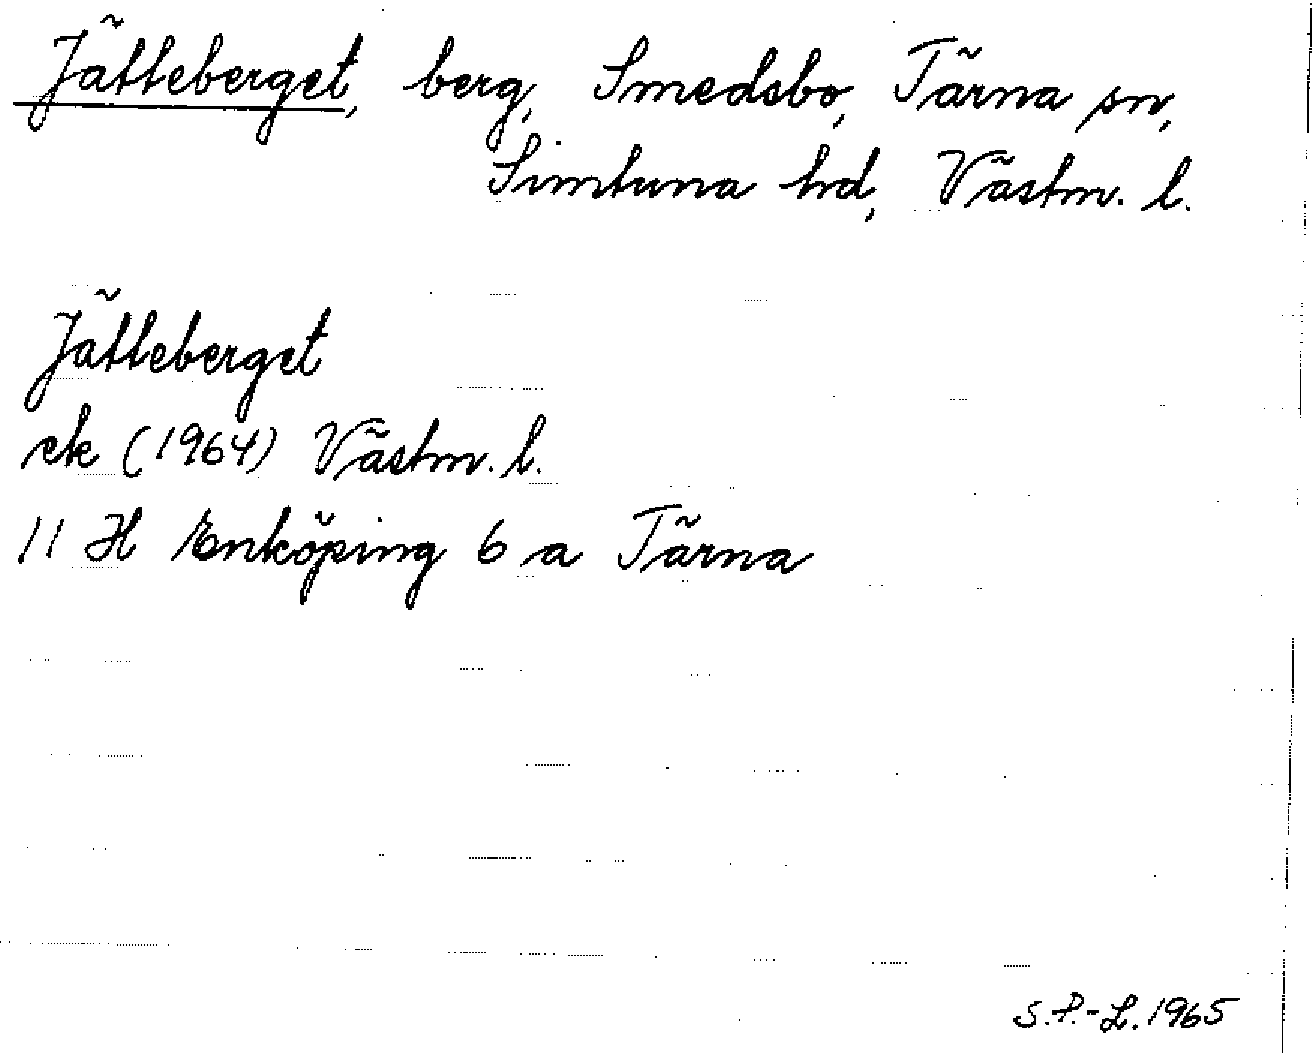 Jätteberget, berg, Smedsbo, Tärna sn,
Simtuna hd, Västm. l.
Jätteberget
ek (1964) Västm. l.
11 H Enköping 6 a Tärna
S.P.-L. 1965